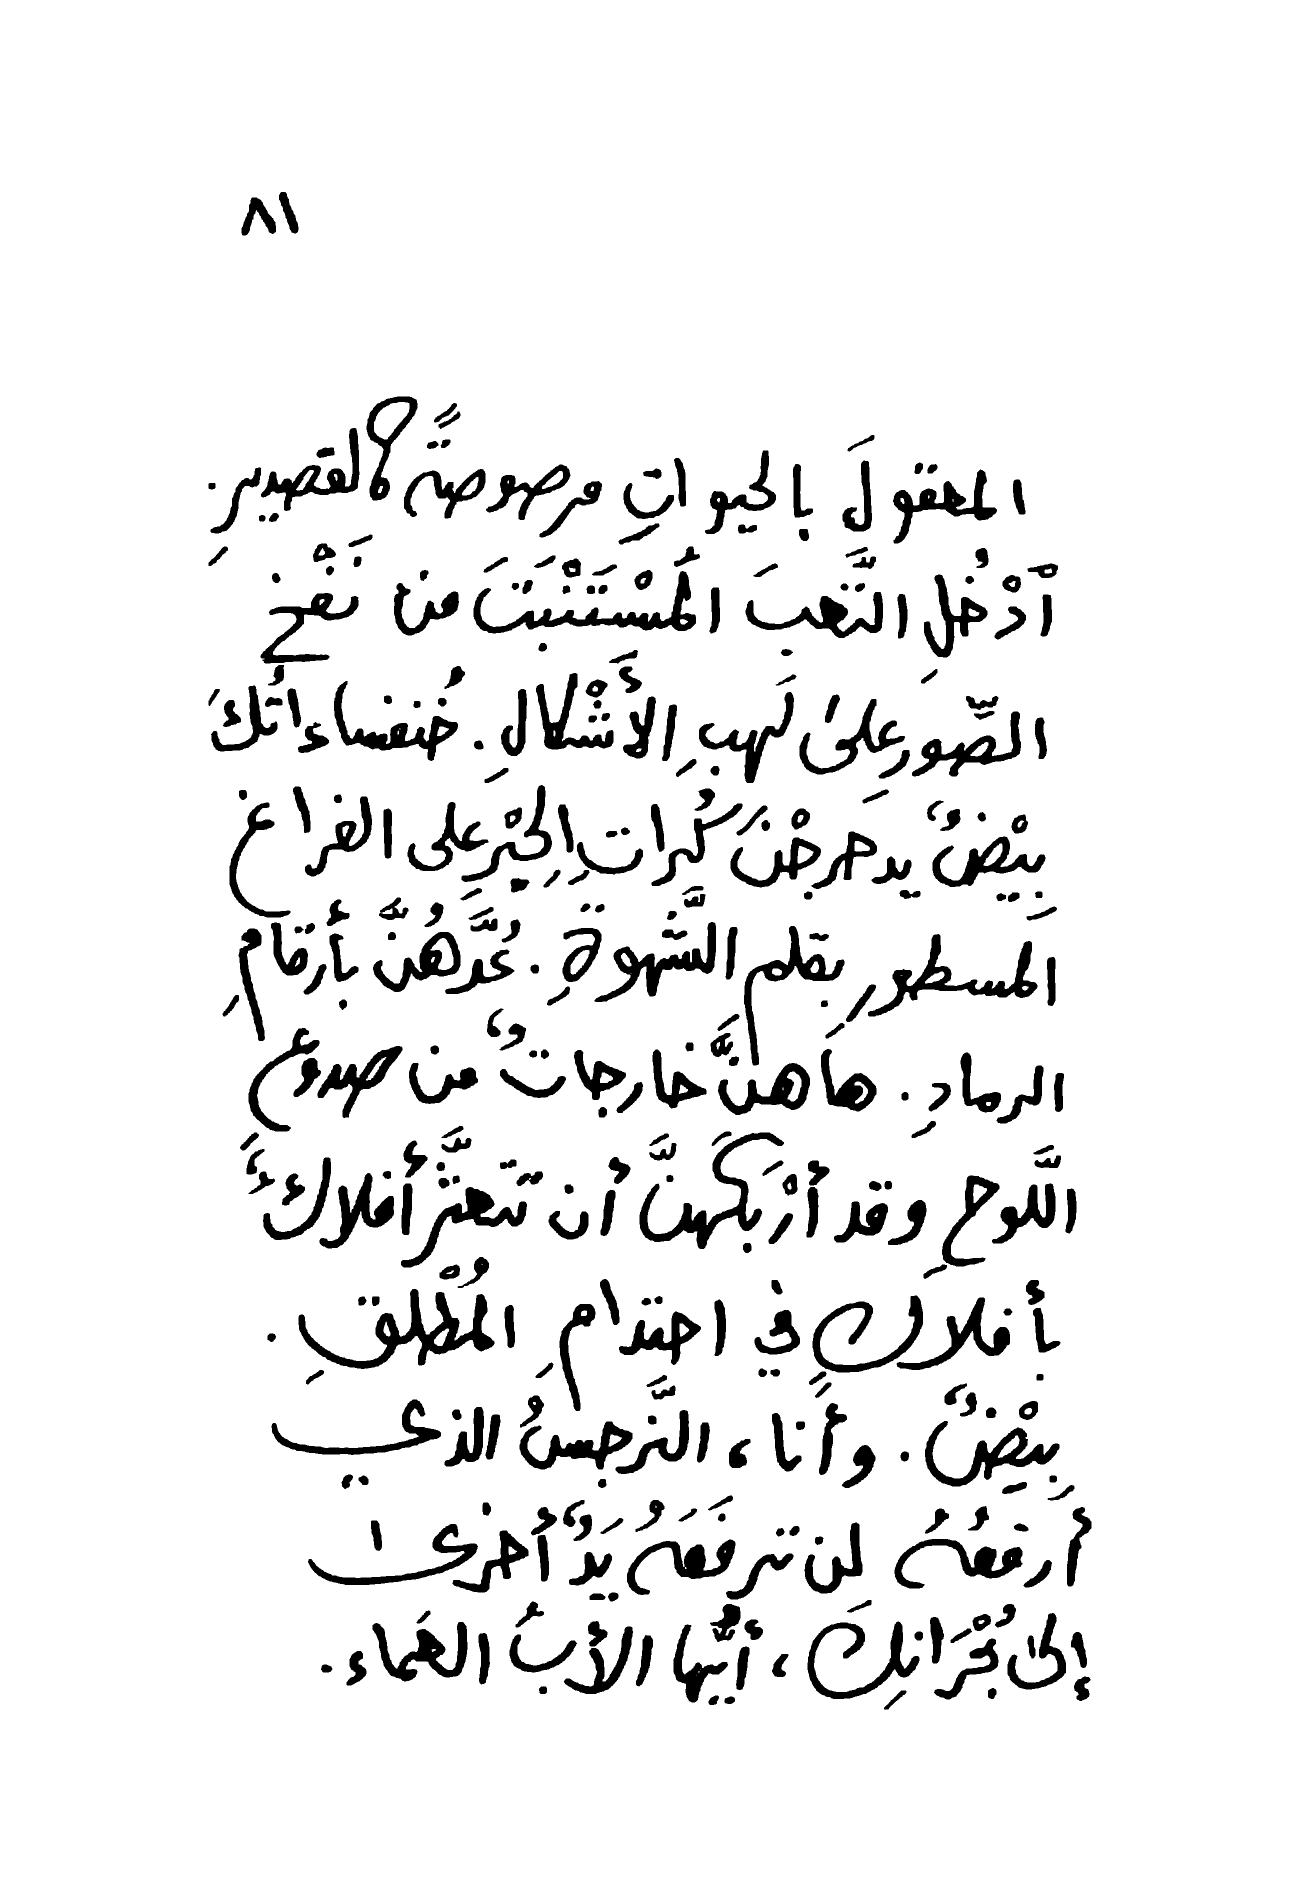 ٨١
المعقولَ بالحيواتِ مرصوصةً كالقصديرِ.
أَدْخُلِ التَّعبَ المُسْتَنْبَتَ من نَفْخِ
الصِّورِ على لَهبِ الأَشْكالِ. خُنفساءاتُكَ
بِيْضٌ يدحرجْنَ كُراتِ الحِبْرِ على الفراغ
المسطورِ بقلمِ الشَّهوةِ. عُدَّهُنَّ بأرقامِ
الرمادِ. هاهنَّ خارجاتٌ من صدوعِ
اللَّوحِ وقد أرْبَكَهنَّ أن تتعثَّرَ أفلاكٌ
بأفلاكٍ في احتدامِ المُطْلقِ.
بِيْضٌ. وأنا، النَّرجسُ الذي
أرفعُهُ لن ترفَعَهُ يَدٌ أخرىٰ
إلىٰ بُحْرَانِكَ، أيُّها الأبُ العَماء.